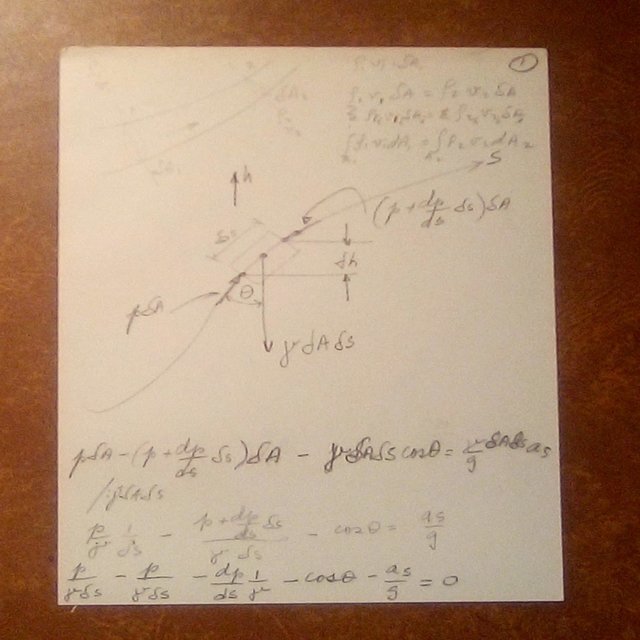 ①
ρ₁v₁δA
ρ₁v₁δA = ρ₂v₂δA
Σρ₁v₁δA₁ = Σρ₂v₂δA₂
∫ρ₁v₁dA₁ = ∫ρ₂v₂dA₂
S
h
(p + dp/ds δs)δA
δs
δh
θ
pδA
γδAδs
pδA - (p + dp/ds δs)δA - γδAδs cosθ = γ/g δAδs as
/:γδAδs
p/γ 1/δs - (p + dp/ds δs)/(γ δs) - cosθ = as/g
p/γδs - p/γδs - dp/ds 1/γ - cosθ - as/g = 0